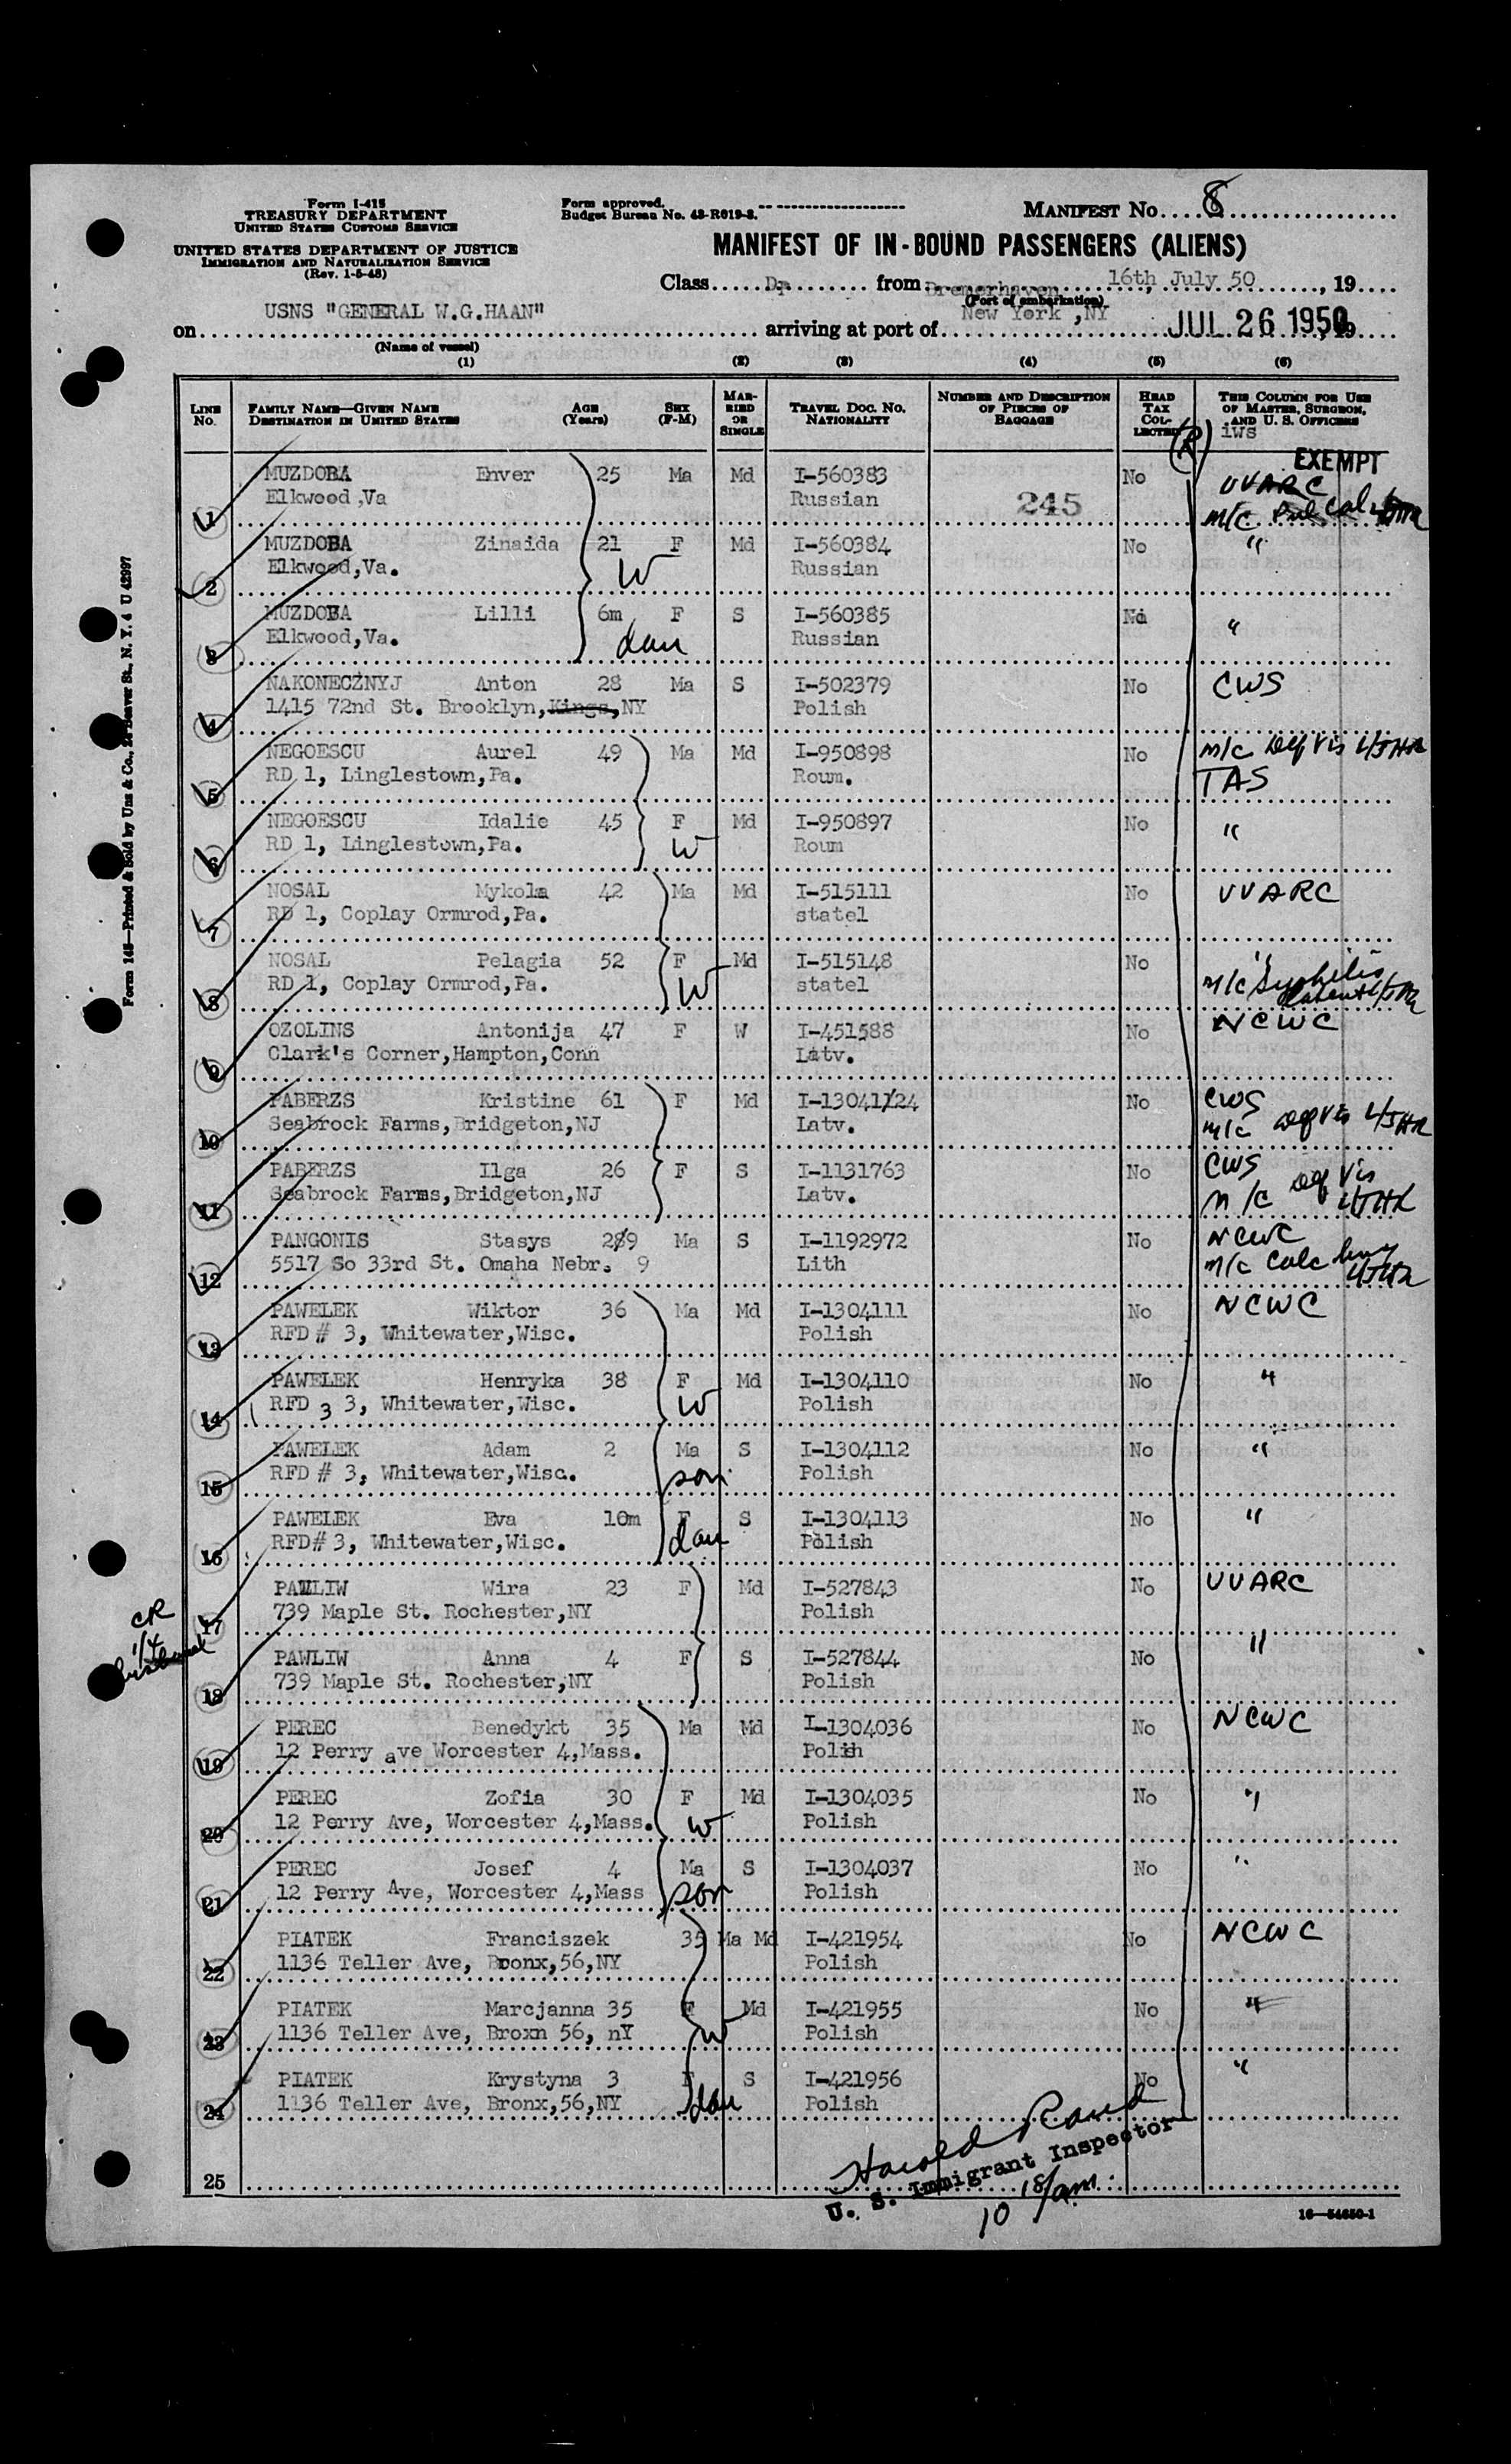 Form I-415
TREASURY DEPARTMENT
UNITED STATES CUSTOMS SERVICE
UNITED STATES DEPARTMENT OF JUSTICE
IMMIGRATION AND NATURALIZATION SERVICE
(Rev. 1-5-48)
Form approved.
Budget Bureau No. 43-R019-3.
MANIFEST No. 8
MANIFEST OF IN-BOUND PASSENGERS (ALIENS)
Class Dp from Bremerhaven 16th July 50, 19
(Port of embarkation)
on USNS "GENERAL W.G.HAAN" arriving at port of New York ,NY JUL 26 1950, 19
(Name of vessel)
(1) (2) (3) (4) (5) (6)
LINE NO. FAMILY NAME—GIVEN NAME DESTINATION IN UNITED STATES AGE (Years) SEX (F-M) MARRIED OR SINGLE TRAVEL DOC. NO. NATIONALITY NUMBER AND DESCRIPTION OF PIECES OF BAGGAGE HEAD TAX COLLECTED THIS COLUMN FOR USE OF MASTER, SURGEON, AND U. S. OFFICERS
(R) iws
EXEMPT
1 MUZDOBA Enver 25 Ma Md I-560383 No UVARC
Elkwood ,Va Russian 245 m/c
2 MUZDOBA Zinaida 21 F Md I-560384 No "
Elkwood,Va. W Russian
3 MUZDOBA Lilli 6m F S I-560385 No "
Elkwood,Va. dau Russian
4 NAKONECZNYJ Anton 28 Ma S I-502379 No CWS
1415 72nd St. Brooklyn,Kings,NY Polish
5 NEGOESCU Aurel 49 Ma Md I-950898 No m/c Def Vis L/JHR
RD 1, Linglestown,Pa. Roum. TAS
6 NEGOESCU Idalie 45 F Md I-950897 No "
RD 1, Linglestown,Pa. W Roum
7 NOSAL Mykola 42 Ma Md I-515111 No UVARC
RD 1, Coplay Ormrod,Pa. statel
8 NOSAL Pelagia 52 F Md I-515148 No "
RD 1, Coplay Ormrod,Pa. W statel m/c Syphilis latent L/JHR
9 OZOLINS Antonija 47 F W I-451588 No NCWC
Clark's Corner,Hampton,Conn Latv.
10 PABERZS Kristine 61 F Md I-13041/24 No CWS
Seabrock Farms,Bridgeton,NJ Latv. m/c Def Vis L/JHR
11 PABERZS Ilga 26 F S I-1131763 No CWS
Seabrock Farms,Bridgeton,NJ Latv. m/c Def Vis L/JHR
12 PANGONIS Stasys 289 Ma S I-1192972 No NCWC
5517 So 33rd St. Omaha Nebr. 9 Lith m/c Calc lung L/JHR
13 PAWELEK Wiktor 36 Ma Md I-1304111 No NCWC
RFD # 3, Whitewater,Wisc. Polish
14 PAWELEK Henryka 38 F Md I-1304110 No "
RFD 3 3, Whitewater,Wisc. W Polish
15 PAWELEK Adam 2 Ma S I-1304112 No "
RFD # 3, Whitewater,Wisc. son Polish
16 PAWELEK Eva 10m F S I-1304113 No "
RFD# 3, Whitewater,Wisc. dau Polish
17 PAWLIW Wira 23 F Md I-527843 No UVARC
739 Maple St. Rochester,NY Polish
CR
1/4
husband
18 PAWLIW Anna 4 F S I-527844 No "
739 Maple St. Rochester,NY Polish
19 PEREC Benedykt 35 Ma Md I-1304036 No NCWC
12 Perry ave Worcester 4,Mass. Polish
20 PEREC Zofia 30 F Md I-1304035 No "
12 Perry Ave, Worcester 4,Mass. W Polish
21 PEREC Josef 4 Ma S I-1304037 No "
12 Perry Ave, Worcester 4,Mass son Polish
22 PIATEK Franciszek 35 Ma Md I-421954 No NCWC
1136 Teller Ave, Bronx,56,NY Polish
23 PIATEK Marcjanna 35 F Md I-421955 No "
1136 Teller Ave, Broxn 56, nY W Polish
24 PIATEK Krystyna 3 F S I-421956 No "
1136 Teller Ave, Bronx,56,NY dau Polish
25
Harold Rand
U. S. Immigrant Inspector
10 18/am.
16—54650-1
Form 145—Printed & Sold by Unz & Co., 24 Beaver St., N. Y. 4 U 42997